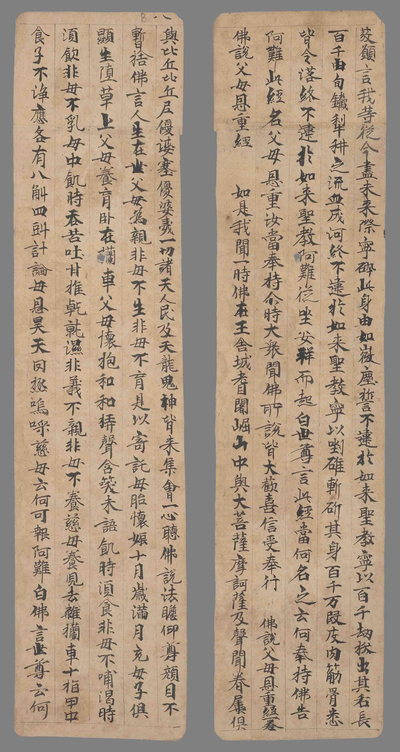 願言我等從今盡未來際寧碎此身由如微塵誓不違於如來聖教寧以百千劫拔出其舌長
百千由旬鐵犁耕之流血成河終不違於如來聖教寧以剉碓斬斫其身百千万段皮肉筋骨悉
皆令落終不違於如來聖教阿難從坐安祥而起白世尊言此經當何名之云何奉持佛告
阿難此經名父母恩重汝當奉持尒時大衆聞佛所說皆大歡喜信受奉行 佛說父母恩重經卷
佛說父母恩重經 如是我聞一時佛在王舍城耆闍崛山中與大菩薩摩訶薩及聲聞眷屬俱
與比丘比丘尼優婆塞優婆夷一切諸天人民及天龍鬼神皆來集會一心聽佛說法瞻仰尊顏目不
暫捨佛言人生在世父母為親非母不生非母不育是以寄託母胎懷娠十月歲滿月充母子俱
顯生墮草上父母養育臥在欄車父母懷抱和和弄聲含笑未語飢時須食非母不哺渴時
須飲非母不乳母中飢時吞苦吐甘推乾就濕非義不親非母不養慈母養兒去離欄車十指甲中
食子不淨應各有八斛四斗計論母恩昊天罔極嗚呼慈母云何可報阿難白佛言世尊云何